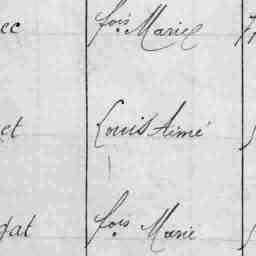 ec fois Marie
et Louis Aimé
at fois Marie